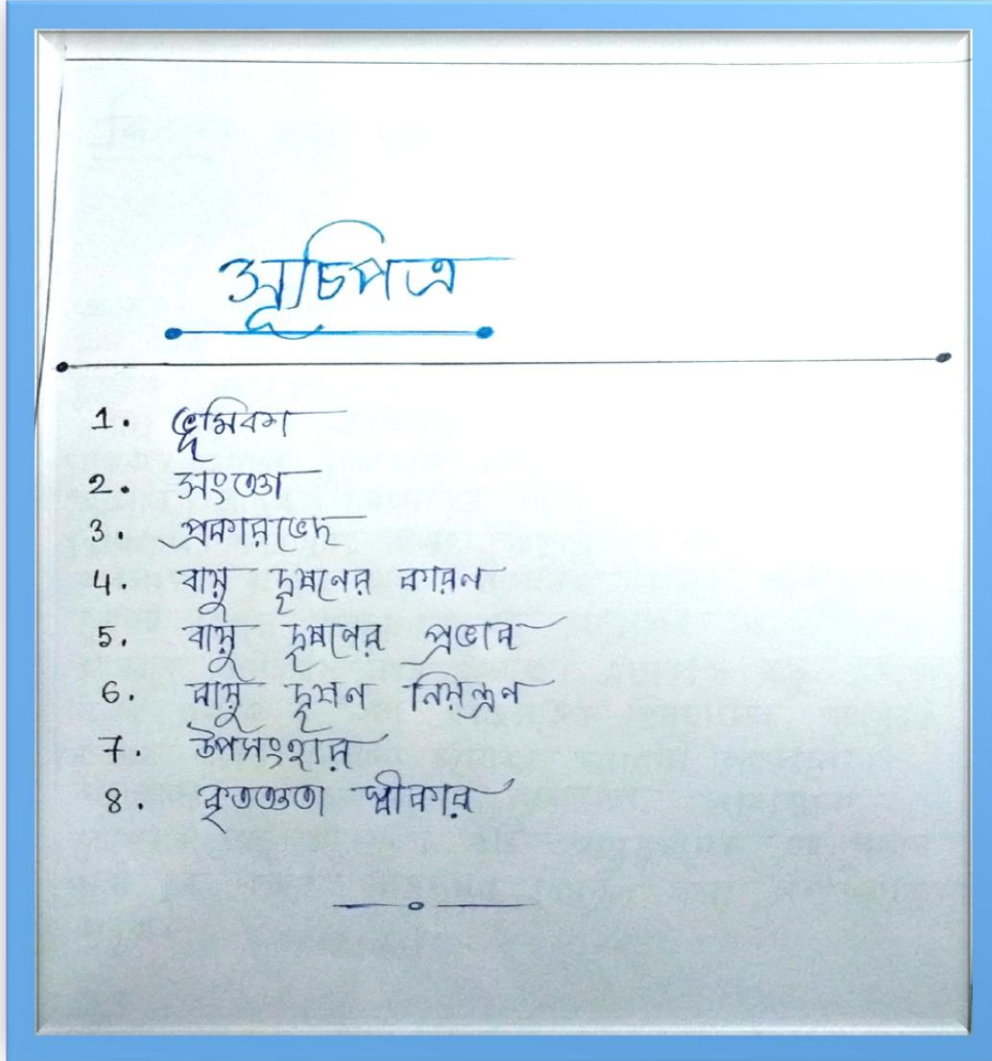 সূচিপত্র
1. ভূমিকা
2. সংজ্ঞা
3. প্রকারভেদ
4. বায়ু দূষণের কারণ
5. বায়ু দূষণের প্রভাব
6. বায়ু দূষণ নিয়ন্ত্রণ
7. উপসংহার
8. কৃতজ্ঞতা স্বীকার